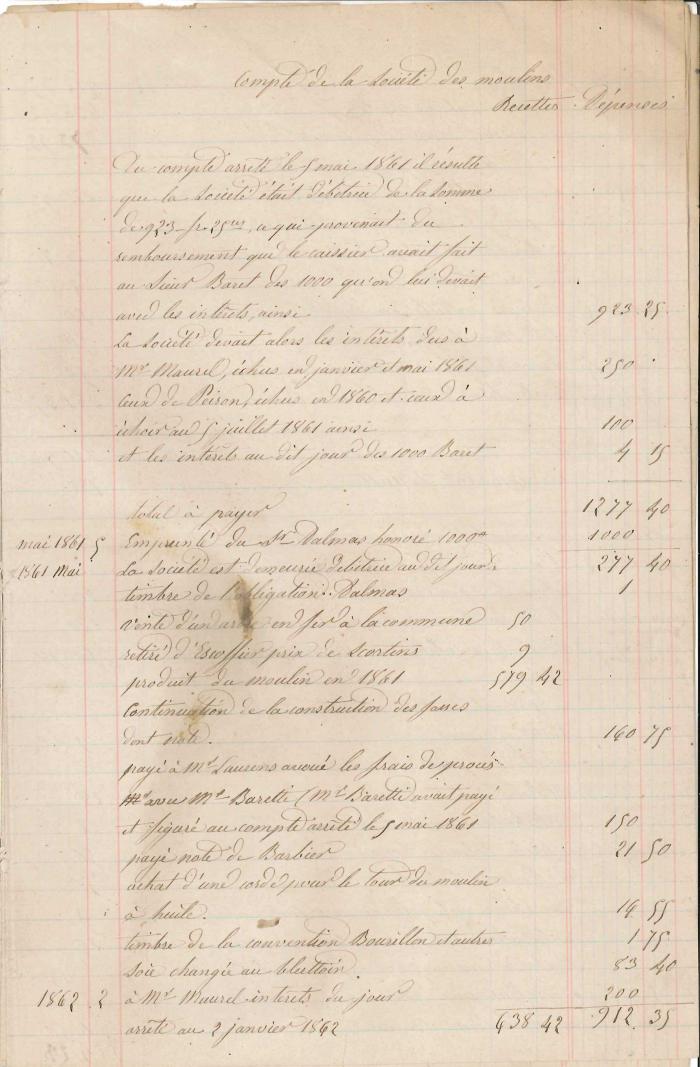 Compte de la Société des moulins
Recettes Dépenses
Du compte arrêté le 5 mai 1861 il résulte
que la Société était débitrice de la somme
de 923 fr. 25 cmes, ce qui provenait du
remboursement que le caissier avait fait
au Sieur Baret des 1000 qu'on lui devait
avec les intérêts, ainsi 923 25
La Société devait alors les intérêts dus à
Mr Maurel, échus en janvier et mai 1861 250
Ceux de Peiron, échus en 1860 et ceux à
échoir au 5 juillet 1861 ainsi 100
et les intérêts au dit jour des 1000 Baret 4 15
total à payer 1277 40
mai 1861 5 Emprunté du Sr Dalmas honoré 1000 1000
1861 Mai La Société est demeurée débitrice au dit jour 277 40
timbre de l'obligation Dalmas 1
Vente d'un arbre en fer à la commune 50
retiré d'Escoffier prix de Scortins 9
produit du moulin en 1861 579 42
Continuation de la construction des fosses
dont note. 160 75
payé à Me Laurens avoué les frais de procès
avec Mr Baretti (Mr Baretti avait payé
et figuré au compte arrêté le 5 mai 1861 150
payé note de Barbier 21 50
achat d'une corde pour le tour du moulin
à huile. 14 55
timbre de la convention Bourillon et autres 1 75
Soie changée au bluttoir 83 40
1862 2 à Mr Maurel interets du jour 200
arrêté au 2 janvier 1862 638 42 912 35